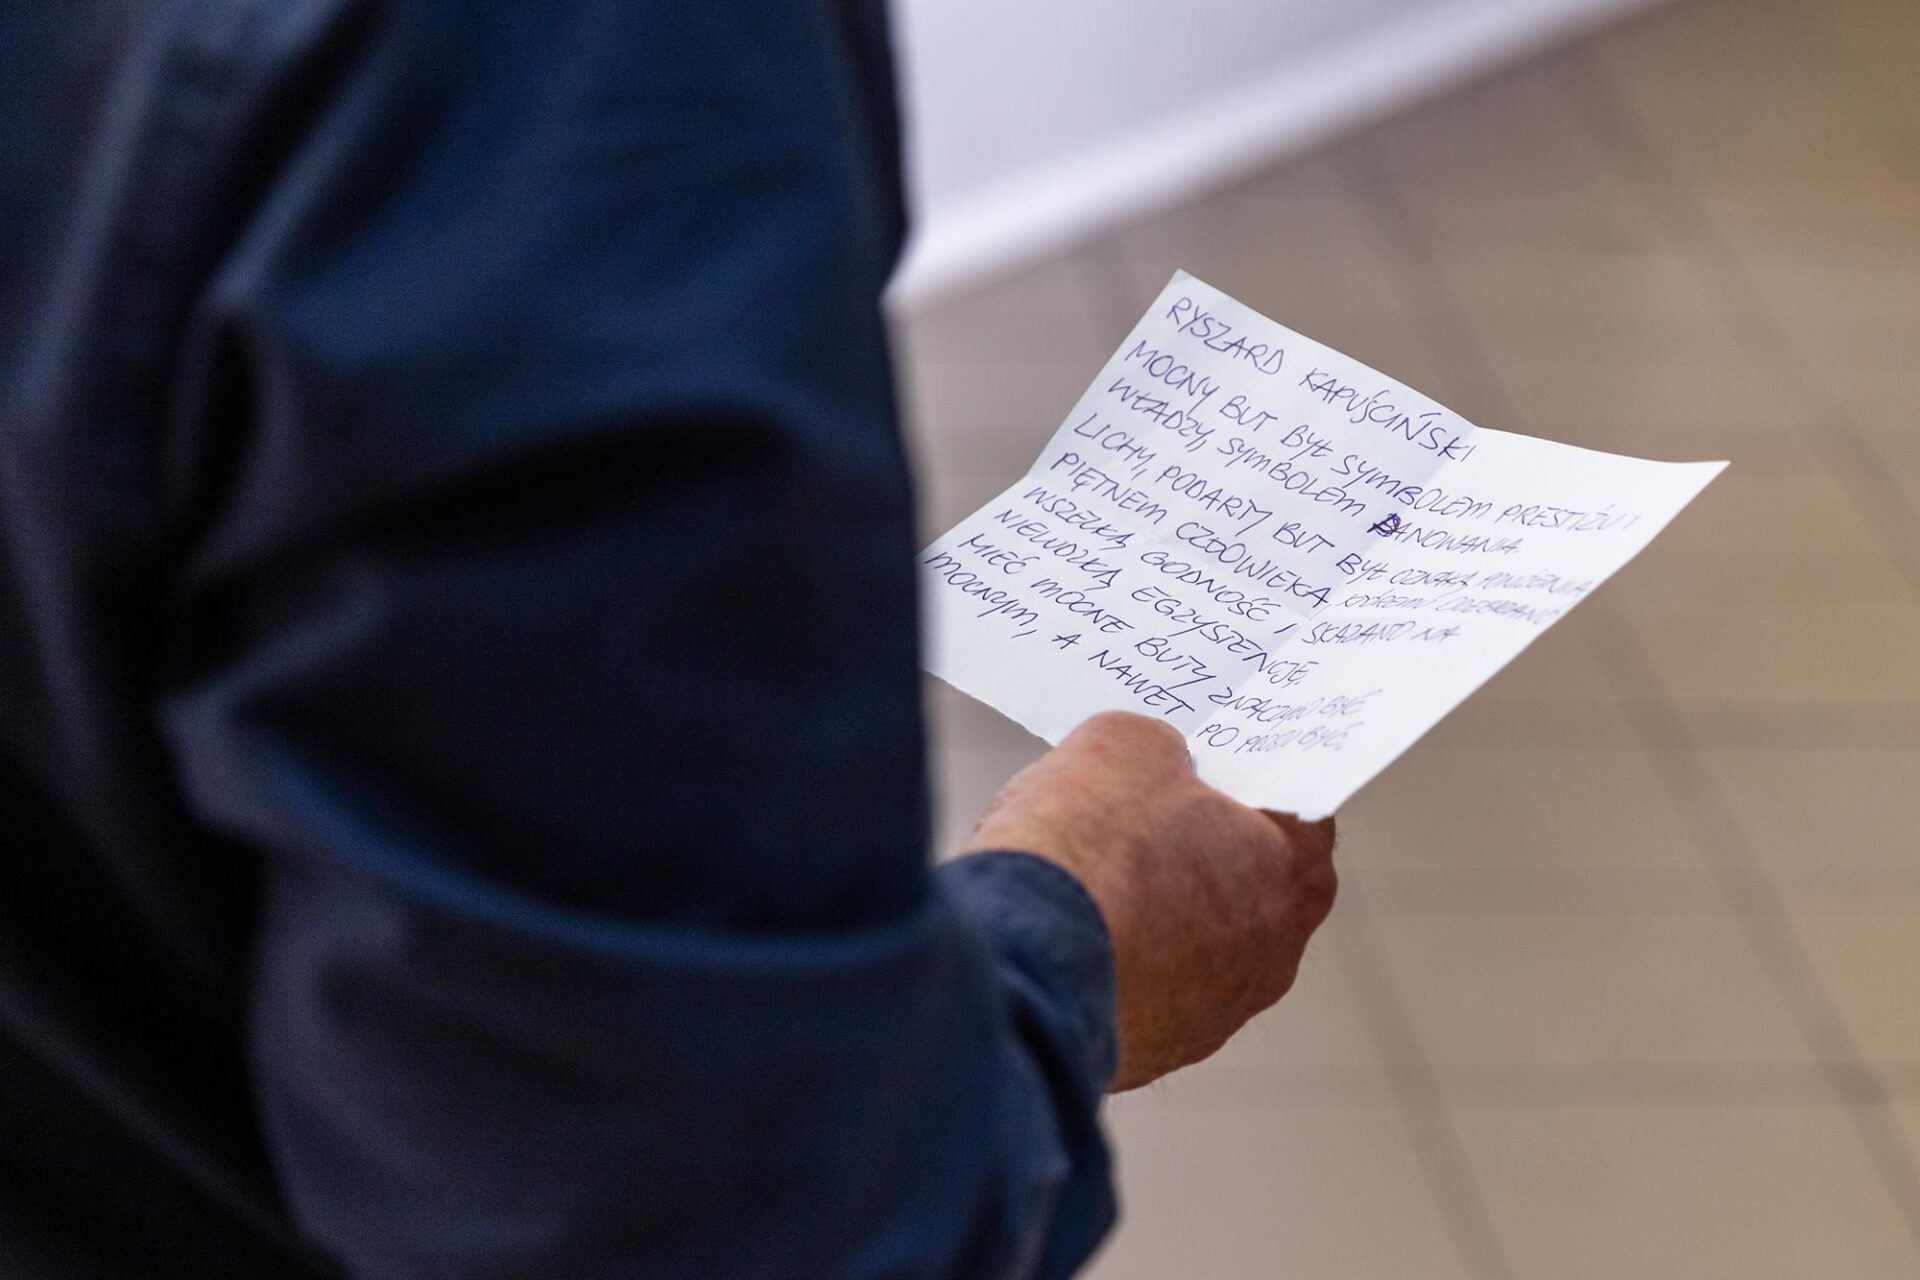 RYSZARD KAPUŚCIŃSKI
MOCNY BUT BYŁ SYMBOLEM PRESTIŻU I
WŁADZY, SYMBOLEM PANOWANIA.
LICHY, PODARTY BUT BYŁ OZNAKĄ PONIŻENIA,
PIĘTNEM CZŁOWIEKA, KTÓREMU ODEBRANO
WSZELKĄ GODNOŚĆ I SKAZANO NA
NIELUDZKĄ EGZYSTENCJĘ.
MIEĆ MOCNE BUTY ZNACZYŁO BYĆ
MOCNYM, A NAWET PO PROSTU BYĆ.